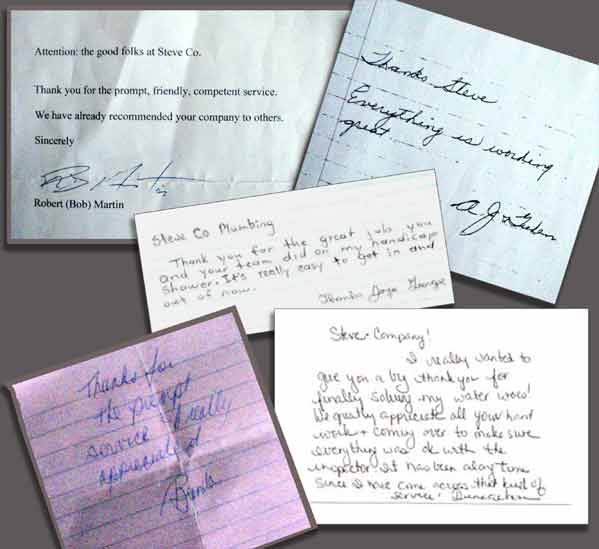 Attention: the good folks at Steve Co.
Thank you for the prompt, friendly, competent service.
We have already recommended your company to others.
Sincerely
Robert (Bob) Martin
Thanks Steve
Everything is working
great
Steve Co Plumbing
Thank you for the great job you
and your team did on my handicap
shower. It's really easy to get in and
out of now.
Thanks
Thanks for
the prompt
service I really
appreciate it
Steve + Company!
I really wanted to
give you a big thank you for
finally solving my water woes!
We greatly appreciate all your hard
work + coming over to make sure
everything was ok with the
inspector. It has been a long time
since I have come across that kind of
service!